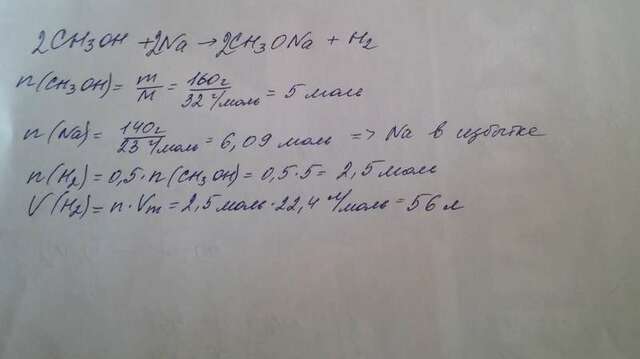 2CH3OH +2Na → 2CH3ONa + H2
n(CH3OH) = m/M = 160г/32 г/моль = 5 моль
n(Na) = 140г/23 г/моль = 6,09 моль => Na в избытке
n(H2) = 0,5·n(CH3OH) = 0,5·5 = 2,5 моль
V(H2) = n·Vm = 2,5 моль·22,4 л/моль = 56 л